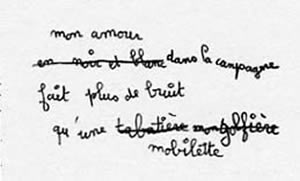 mon amour
en noir et blanc dans la campagne
fait plus de bruit
qu'une tabatière mongolfière
mobilette